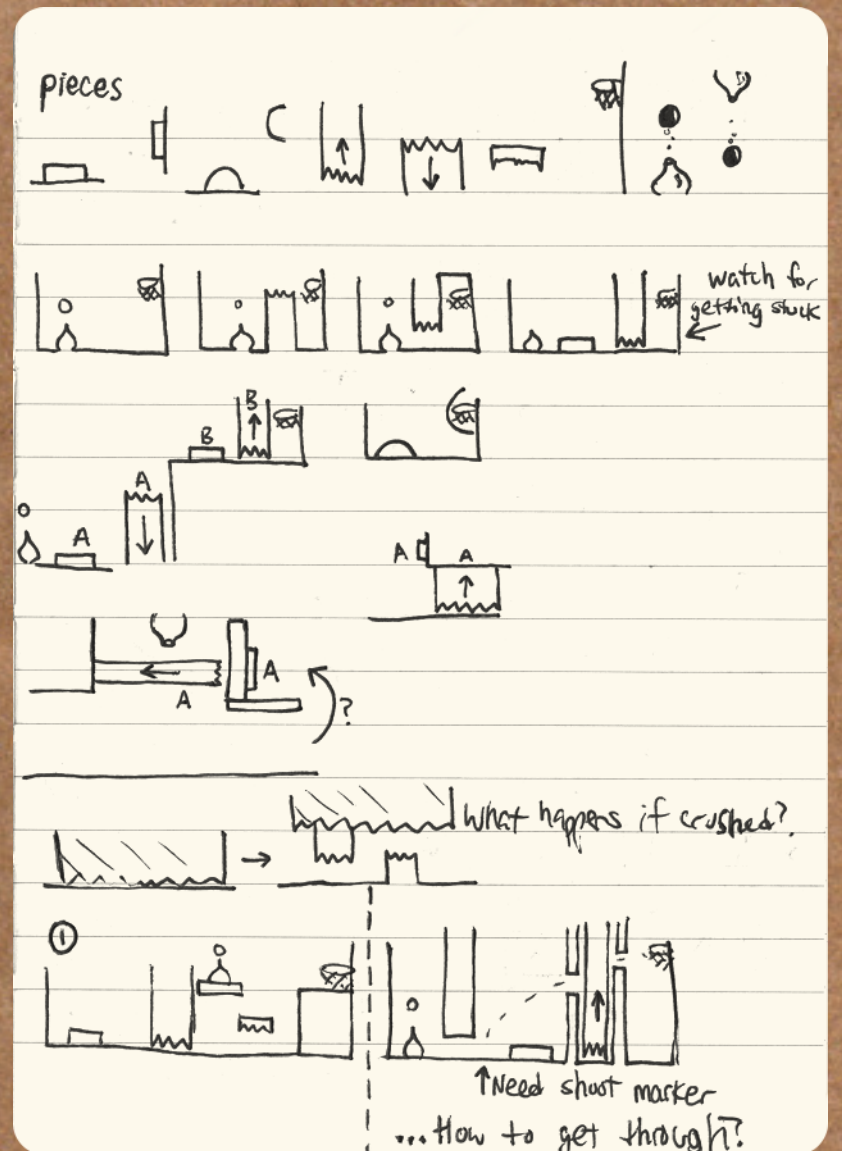 pieces
watch for
getting stuck
B
B
A
A
A
A
A
A
?
What happens if crushed?
1
↑Need shoot marker
...How to get through?